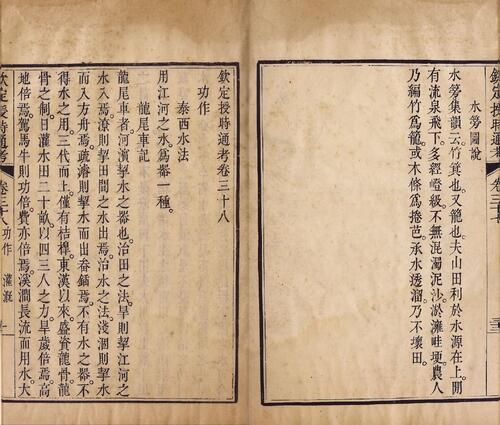 欽定授時通考 卷三十七
水篣圖說
水篣集韻云竹箕也又籠也夫山田利於水源在上間
有流泉飛下多經磴級不無混濁泥沙淤壅畦埂農人
乃編竹爲籠或木條爲捲芭承水透溜乃不壞田
欽定授時通考卷三十八
功作
泰西水法
用江河之水爲器一種
龍尾車記
龍尾車者河濱挈水之器也治田之法旱則挈江河之
水入焉潦則挈田間之水出焉治水之法淺涸則挈水
而入方舟焉疏濬則挈水而出畚鍤焉不有水之器不
得水之用三代而上僅有桔槔東漢以來盛資龍骨龍
骨之制日灌水田二十畝以四三人之力旱歲倍焉高
地倍焉駕馬牛則功倍費亦倍焉溪澗長流而用水大
欽定授時通考 卷三十八 功作 灌漑 一